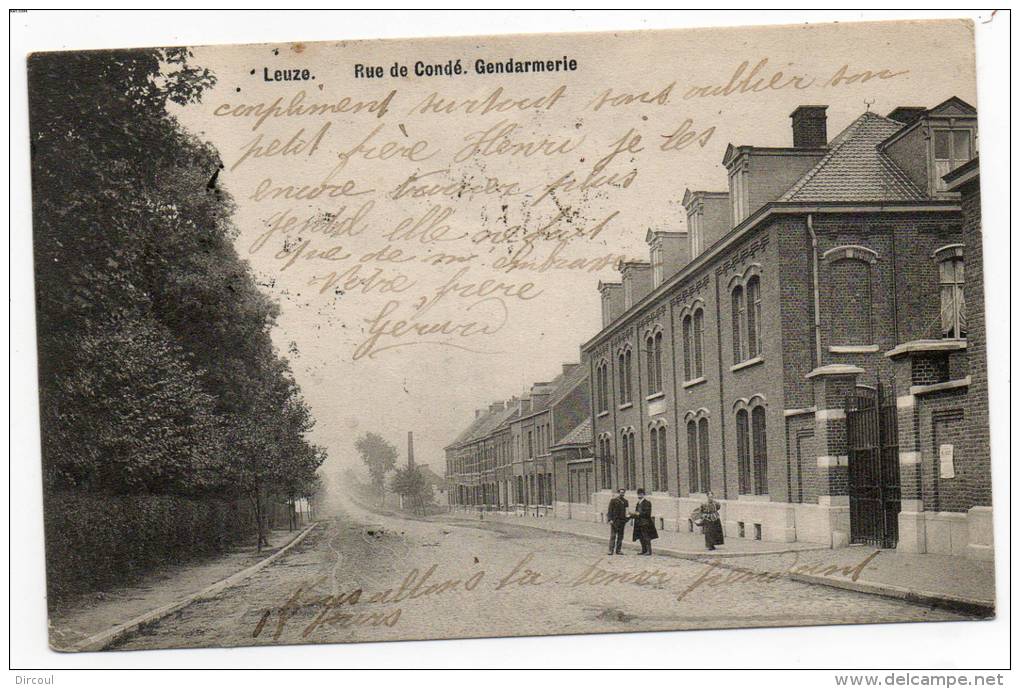 Leuze. Rue de Condé. Gendarmerie
compliment surtout sans oublier son
petit frère Henri je les
encore trouver plus
gentil elle ne fait
que de m embrasser
Votre frère
Gérard
Nous allons la tenir pendant
15 jours
Dircoul
delcampe.net